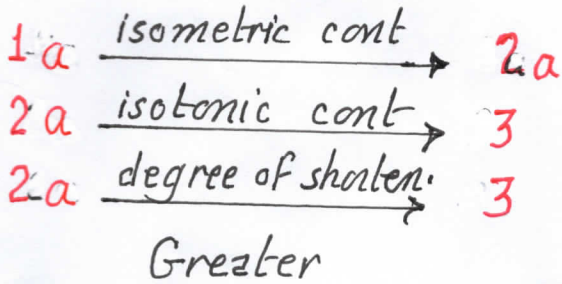 1a isometric cont 2a
2a isotonic cont 3
2a degree of shorten. 3
Greater